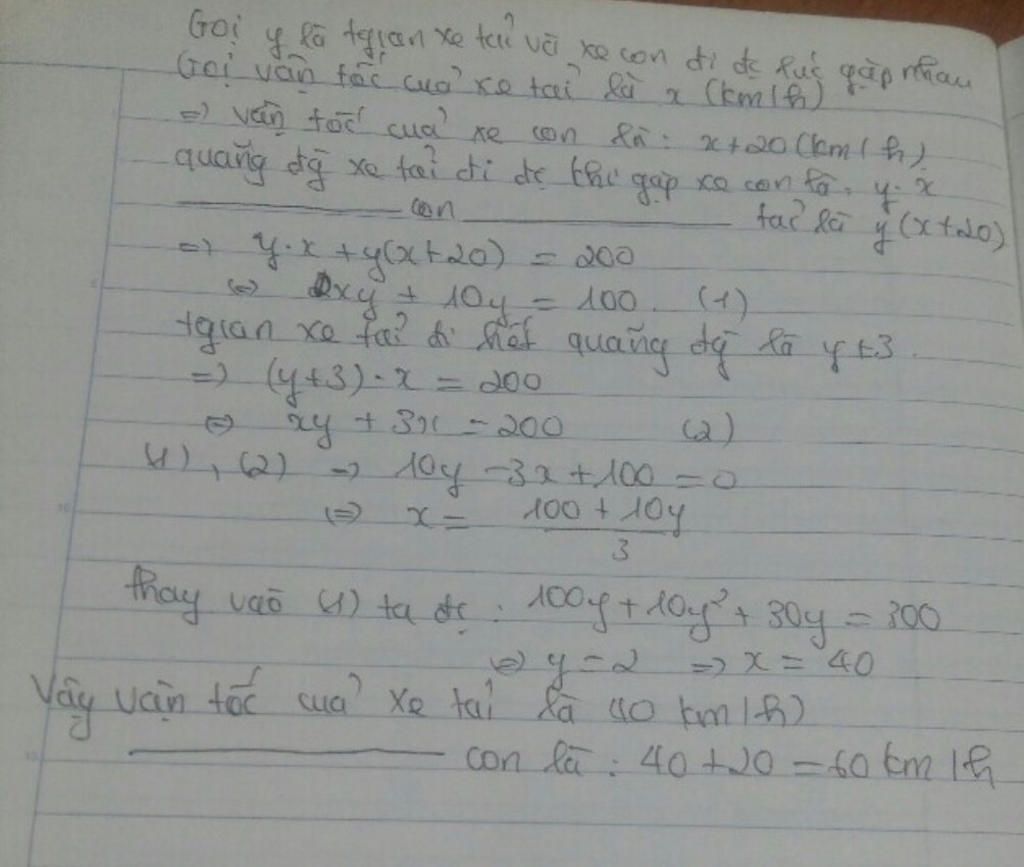 Gọi y là tgian xe tải và xe con đi đc lúc gặp nhau
Gọi vận tốc của xe tải là x (km/h)
=> vận tốc của xe con là: x+20 (km/h)
quãng đg xe tải đi đc khi gặp xe con là, y.x
———— con ———— tải là y(x+20)
=> y.x + y(x+20) = 200
<=> xy + 10y = 100. (1)
tgian xe tải đi hết quãng đg là y+3.
=> (y+3).x = 200
<=> xy + 3x = 200 (2)
(1), (2) => 10y - 3x + 100 = 0
<=> x = \frac{100 + 10y}{3}
thay vào (1) ta đc: 100y + 10y² + 30y = 300
<=> y = 2 => x = 40
Vậy vận tốc của xe tải là 40 km/h)
———— con là: 40 + 20 = 60 km/h